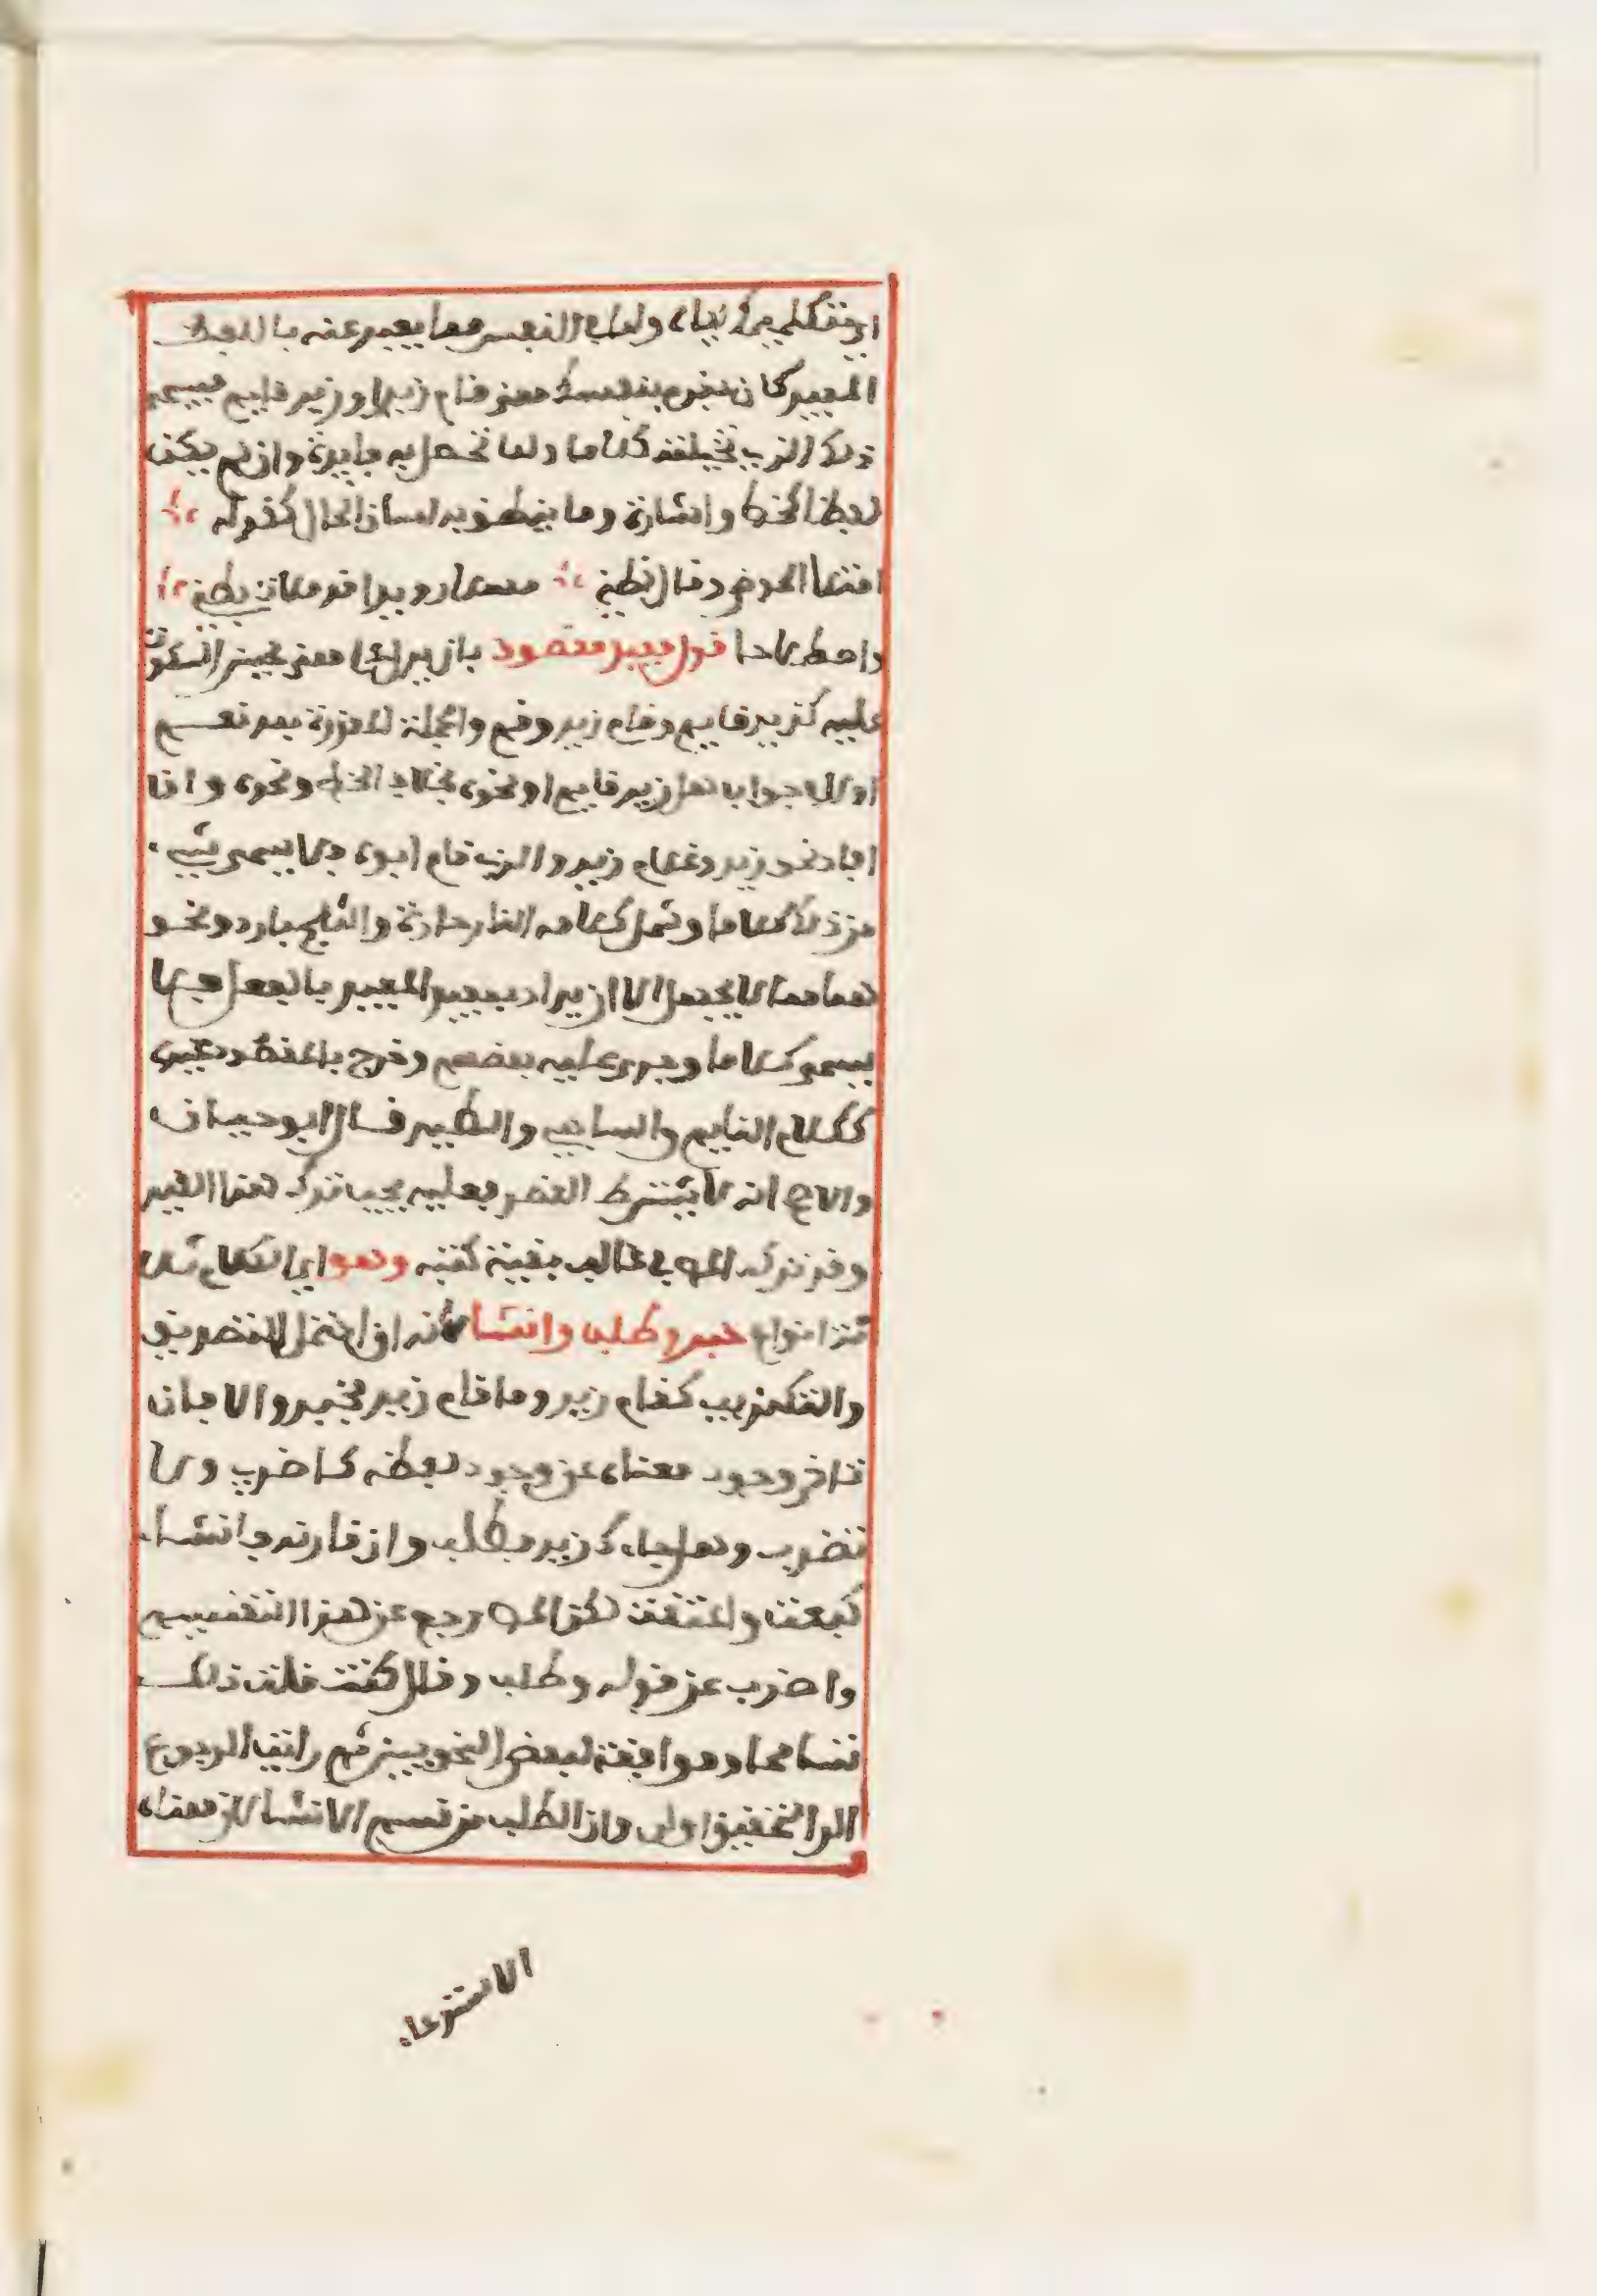 اي تكليمي اياه ولما في النفس مما يعبر عنه باللفظ
المفيد كان يقوم بنفسك معنى قام زيد او زيد قايم فيسمى
ذلك الذي تخيلته كلاما ولما تحصل به فايدة وان لم يكن
لفظا كالخط والاشارة وما ينطق به لسان الحال كقوله
امتلا الحوض وقال قطني مهلا رويدا قد ملات بطني
واصطلاحا قول مفيد مقصود بان يدل على معنى يحسن السكوت
عليه كزيد قايم وقام زيد وقم والجملة المقدرة بعد نعم
او لا في جواب هل زيد قايم او نحوه بخلاف الخط ونحوه وان
افاد نحو زيد وغلام زيد والذي قام ابوه فلا يسمى شيء
من ذلك كلاما وشمل كلامه النار حارة والثلج بارد ونحو
هما مما لا يجهل الا ان يراد بمفيد المفيد بالفعل فلا
يسمى كلاما وجرى عليه بعضهم وخرج بالمقصود غيره
ككلام النايم والساهي والطير قال ابو حيان
والاصح انه لا يشترط القصد فعليه يجب ترك هذا القيد
وقد تركه المص في غالب بقية كتبه وهو اي الكلام ثلا
ثة انواع خبر وطلب وانشا لانه ان احتمل التصديق
والتكذيب كقام زيد وما قام زيد فخبر والا فان
تاخر وجود معناه عن وجود لفظه كاضرب ولا
تضرب وهل جاءك زيد فطلب وان قارنه فانشاء
كبعت واعتقت لكن المص رجع عن هذا التقسيم
واضرب عن قوله وطلب وقال كنت قلت ذلك
تسامحا وموافقة لبعض النحويين ثم رايت الرجوع
الى التحقيق اولى وان الطلب من قسم الانشا لان معناه
الاستدعا